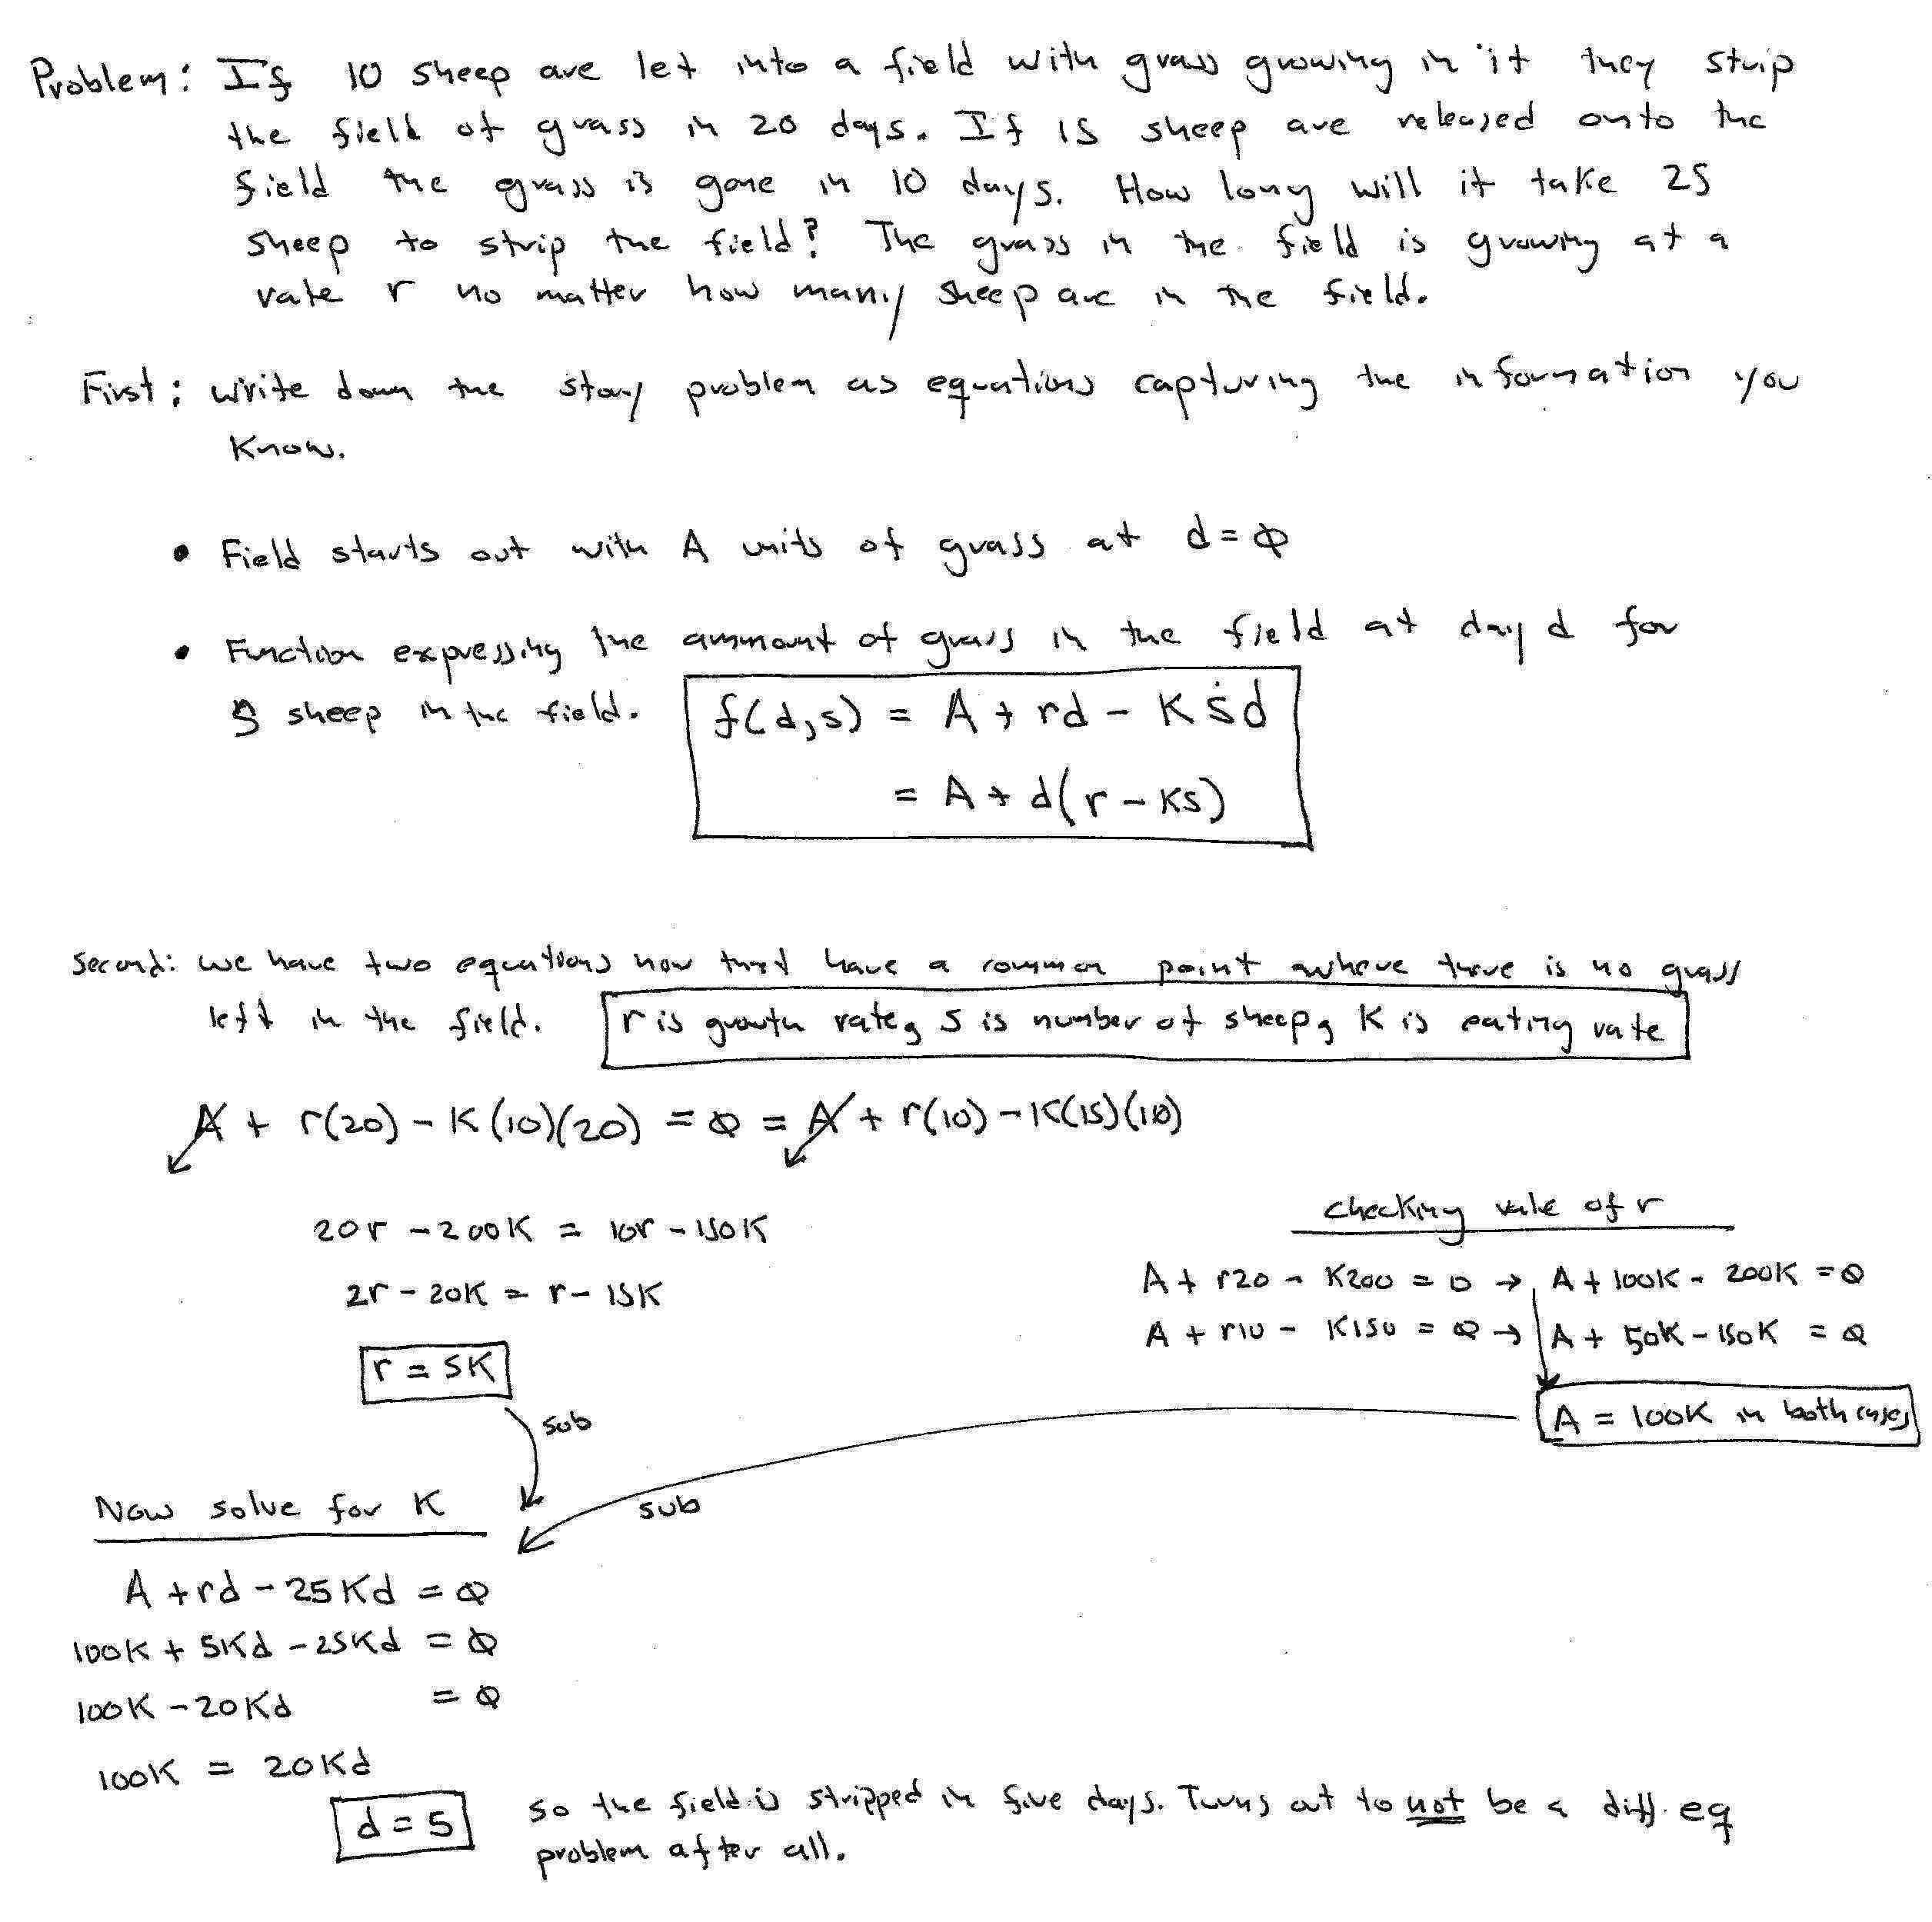 Problem: If 10 sheep are let into a field with grass growing in it they strip
the field of grass in 20 days. If 15 sheep are released onto the
field the grass is gone in 10 days. How long will it take 25
sheep to strip the field? The grass in the field is growing at a
rate r no matter how many sheep are in the field.
First: write down the story problem as equations capturing the information you
know.
• Field starts out with A units of grass at d=0
• Function expressing the ammount of grass in the field at day d for
S sheep in the field.
f(d,s) = A + rd - Ksd
= A + d(r - Ks)
Second: we have two equations now that have a common point where there is no grass
left in the field. r is growth rate, s is number of sheep, K is eating rate
A + r(20) - K(10)(20) = 0 = A + r(10) - K(15)(10)
20r - 200K = 10r - 150K
2r - 20K = r - 15K
r = 5K
sub
checking value of r
A + r20 - K200 = 0 → A + 100K - 200K = 0
A + r10 - K150 = 0 → A + 50K - 150K = 0
A = 100K in both cases
sub
Now solve for K
A + rd - 25Kd = 0
100K + 5Kd - 25Kd = 0
100K - 20Kd = 0
100K = 20Kd
d = 5
so the field is stripped in five days. Turns out to not be a diff. eq
problem after all.